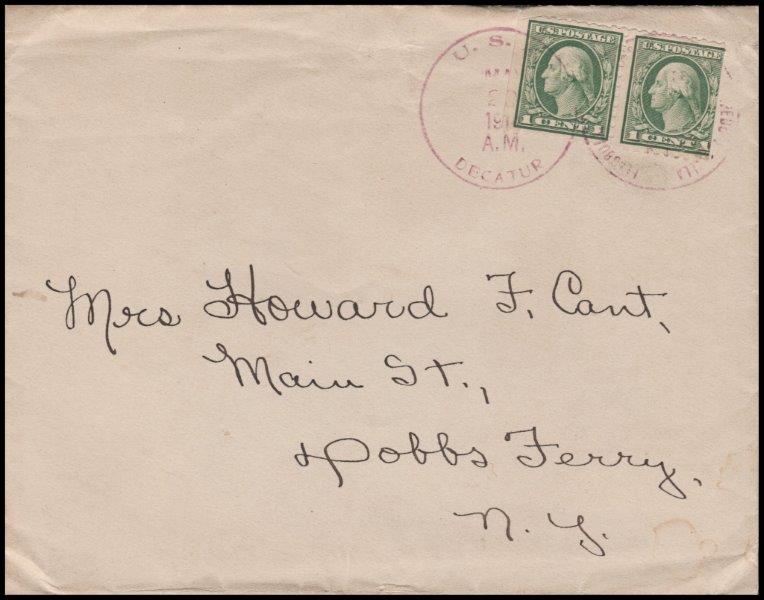 U. S.
A.M.
DECATUR
U.S. POSTAGE
1 CENT 1
U.S. POSTAGE
1 CENT 1
Mrs Howard F. Cant,
Main St.,
Dobbs Ferry,
N. Y.